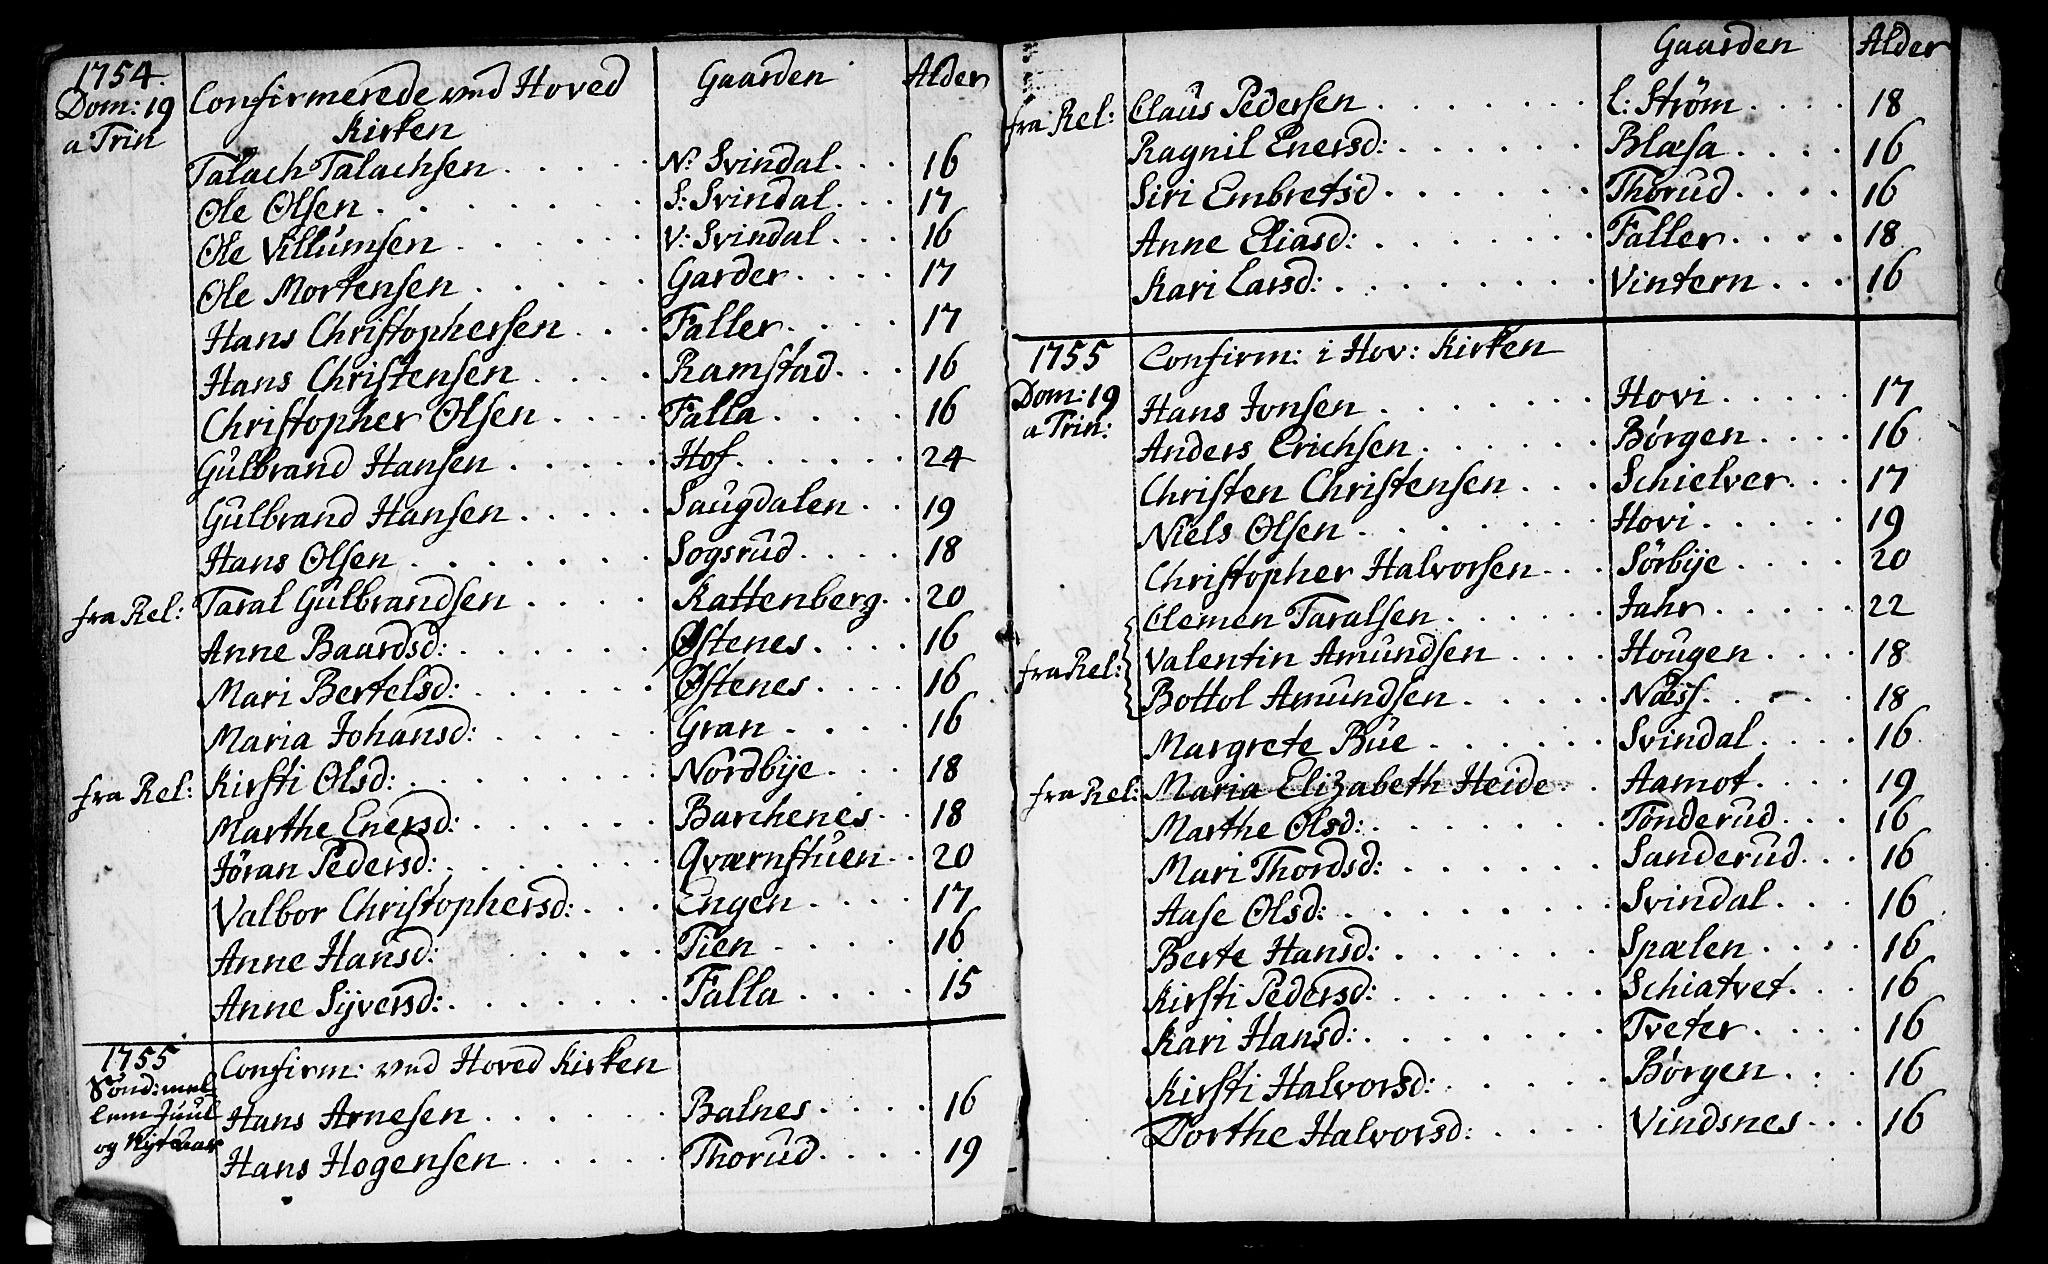 1754. Confirmerede ved Hoved Gaarden Alder
Dom: 19 Kirken
a Trin
Talach Talachsen N. Svindal 16
Ole Olsen S: Svindal 17
Ole Villumsen V: Svindal 16
Ole Mortensen Garder 17
Hans Christophersen Faller 17
Hans Christensen Ramstad 16
Christopher Olsen Falla 16
Gulbrand Hansen Hof 24
Gulbrand Hansen Saugdalen 19
Hans Olsen Sogsrud 18
fra Rel: Taral Gulbrandsen Kattenberg 20
Anne Baardsd: Østenes 16
Mari Bertelsd: Østenes 16
Maria Johansd: Gran 16
fra Rel: Kirsti Olsd: Nordbÿe 18
Marthe Enersd: Barchenes 18
Jöran Pedersd: Qværnstuen 20
Valbor Christophersd: Engen 17
Anne Hansd: Tien 16
Anne Sÿversd: Falla 15
1755 Confirm: ved Hoved Kirken
Sönd: mel
lem Juul Hans Arnesen Balnes 16
og Nÿtaar Hans Hogensen Thorud 19
Gaarden Alder
fra Rel: Claus Pedersen L: Strøm 18
Ragnil Enersd: Blæsa 16
Siri Embretsd Thorud 16
Anne Eliasd: Faller 18
Kari Larsd: Vintern 16
1755 Confirm: i Hov: Kirken
Dom: 19 Hans Jonsen Hovi 17
a Trin: Anders Erichsen Børgen 16
Christen Christensen Schielver 17
Niels Olsen Hovi 19
Christopher Halvorsen Sörbÿe 20
Clemen Taralsen Jahr 22
fra Rel: Valentin Amundsen Hougen 18
Bottol Amundsen Næss 18
Margrete Bue Svindal 16
fra Rel: Maria Elizabeth Heide Aamot 19
Marthe Olsd: Tönderud 16
Mari Thordsd: Sanderud 16
Aase Olsd: Svindal 16
Berte Hansd: Spælen 16
Kirsti Pedersd: Schiatvet 16
Kari Hansd: Tveter 16
Kirsti Halvorsd: Børgen 16
Dorthe Halvorsd: Vindsnes 16